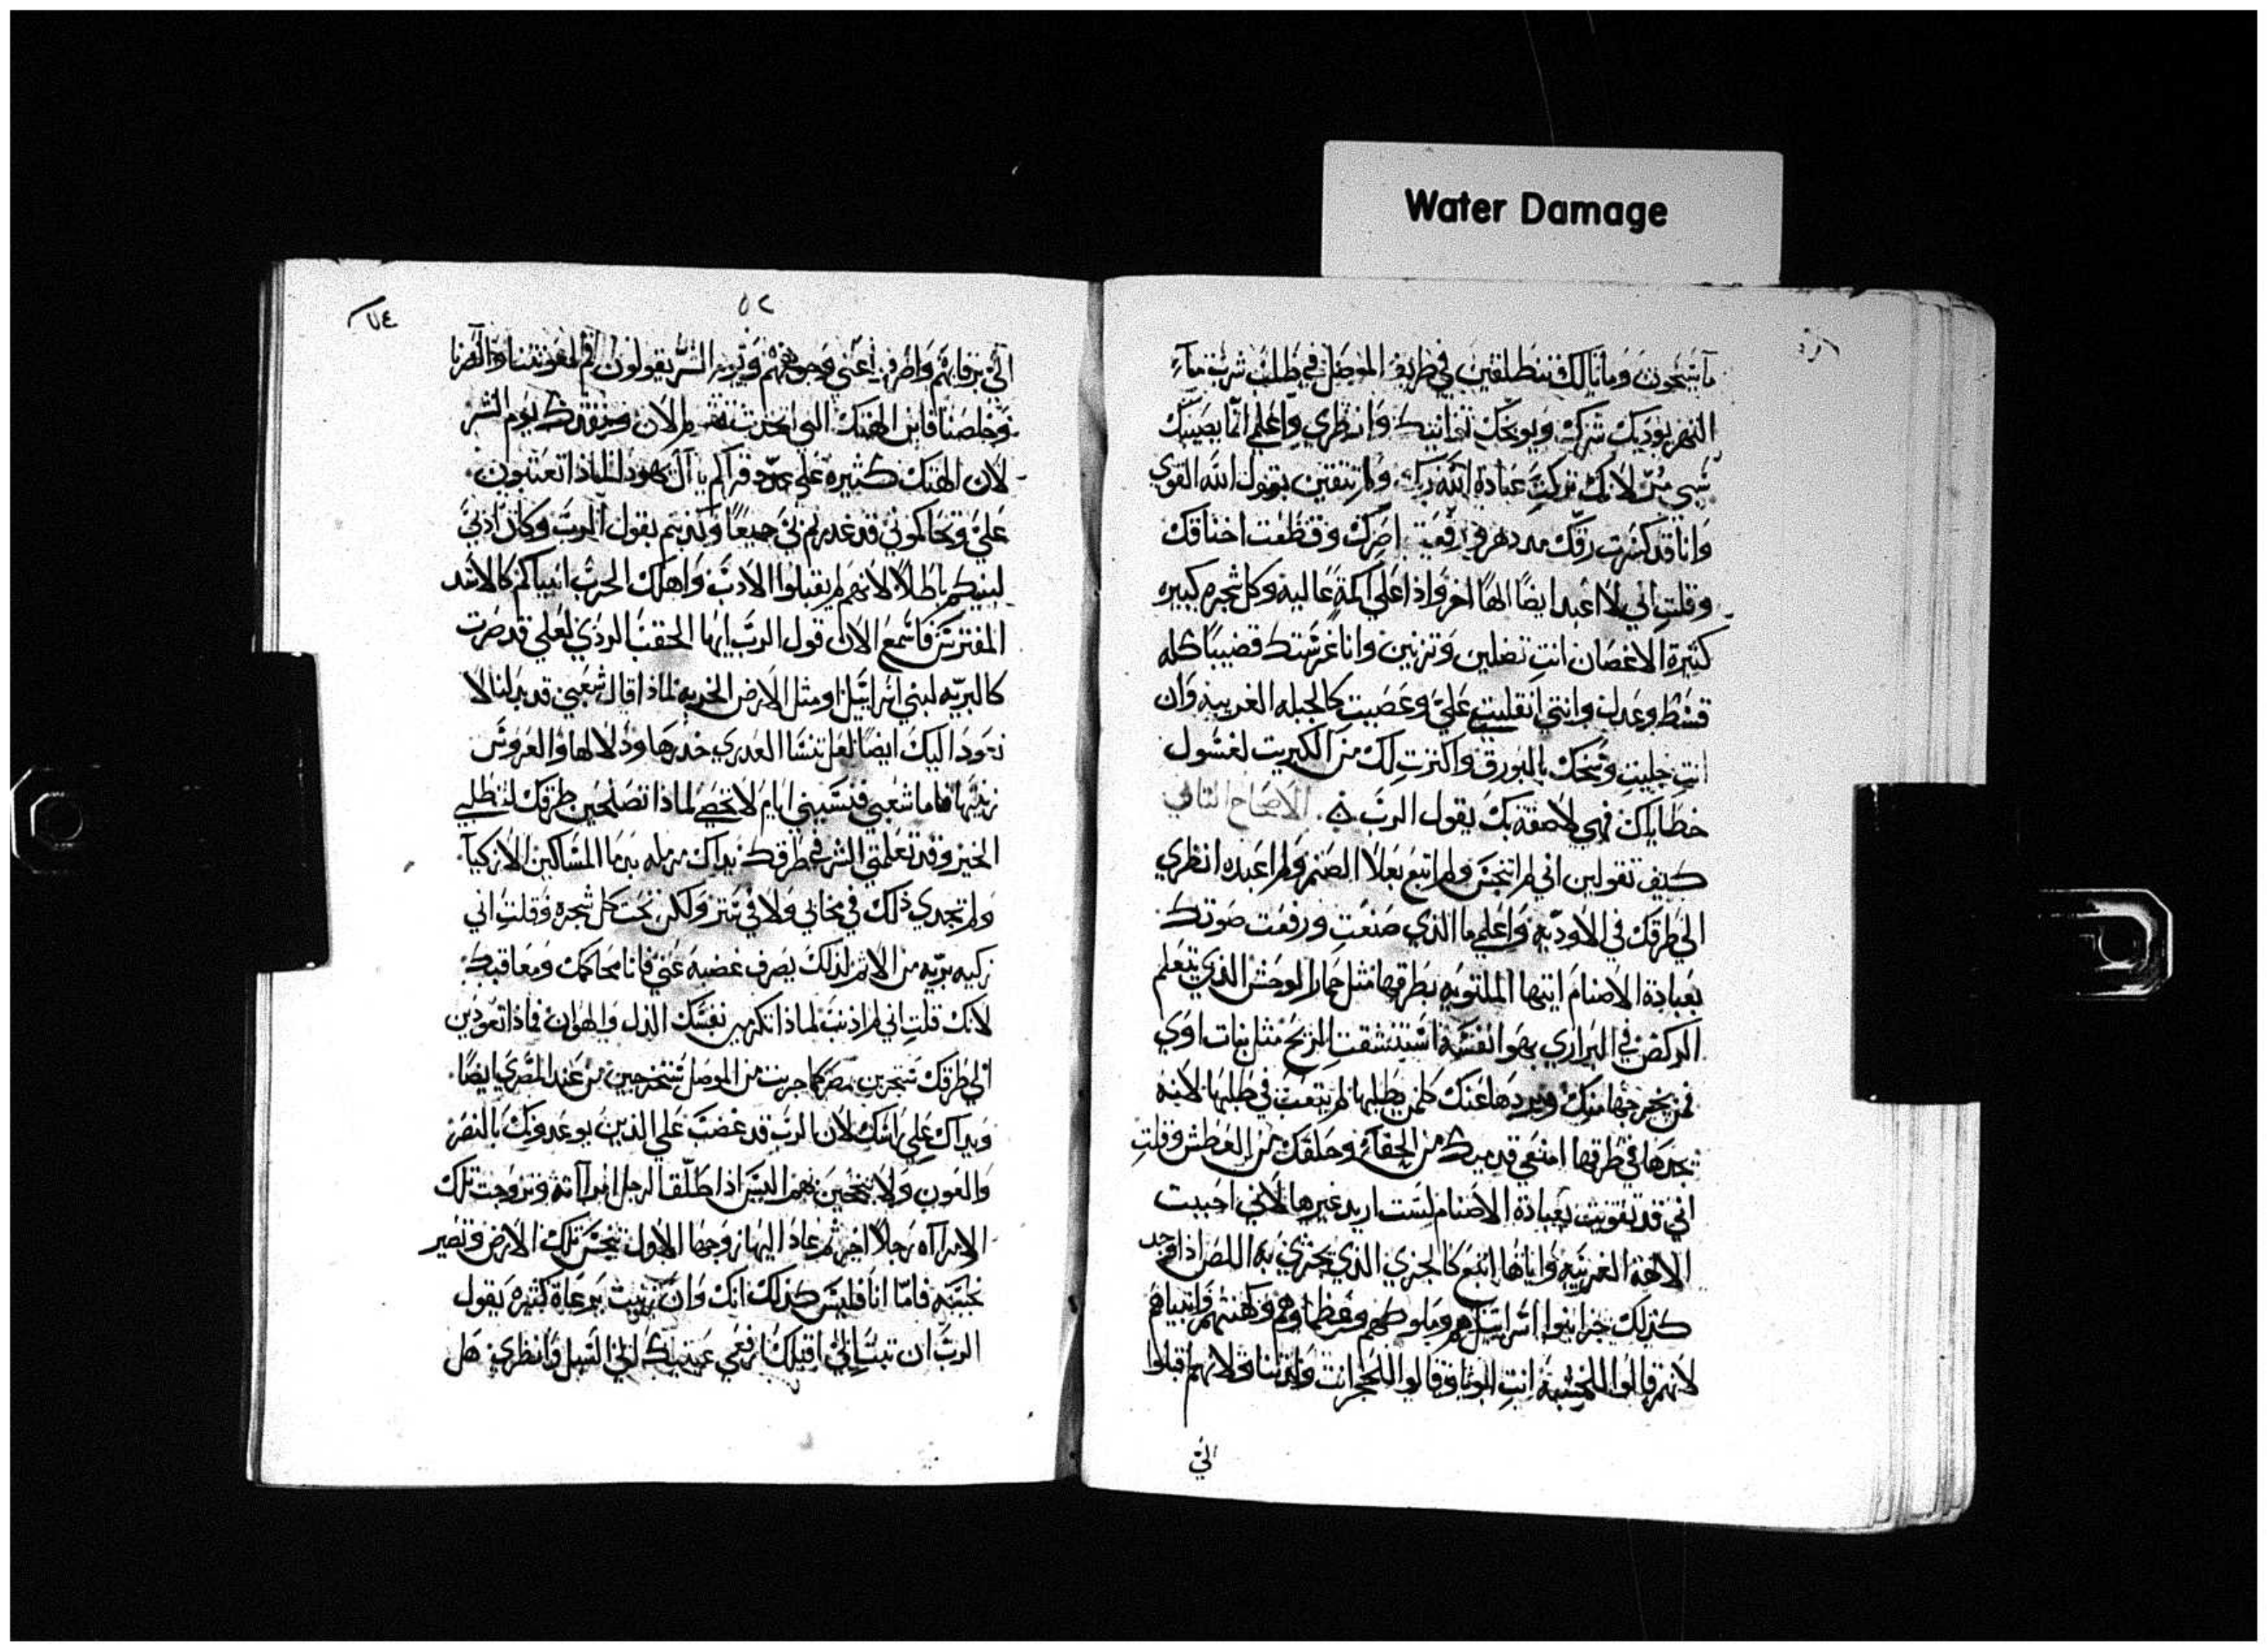 Water Damage
ما سيحون ومانالك تنطلقين في طريق الموصل في طلب شرب ماء
النهر يوديك شرك ويوبخك وانظري واعلمي انما يصيبك
شي لانك تركت عبادة الله ربك ولم تتقين يقول الله القوي
وانا قد كسرت رقك من دهر وقطعت اخناقك
وقلت اني لا اعبد ايضا الها اخر واذا على اكمة عالية وكل شجره كبيره
كثيرة الاغصان انت تضلين وتزنين وانا غرستك قضيبا كله
قسط وعدل وانتي انقلبتي علي وعصيت كالجبله الغريبه وان
انت جليت بالبورق واكثرت لك من الكبريت لغسول
خطاياك فهي لاصقة بك يقول الرب الاصحاح الثاني
كيف تقولين اني لم اتنجس ولم اتبع بعلا الصنم ولم اعبده انظري
الى طرقك في الاوديه واعلمي ما الذي صنعت ورفعت صوتك
بعبادة الاصنام ايتها الملتويه بطرقها مثل حمار الوحش الذي يتعلم
الركض في البراري بهوا نفسه استنشقت الريح مثل بنات اوي
فمن يخرجها منك ويردها عنك كلمن يطلبها لم يتعب في طلبها لانه
يجدها في طرقها امنعي قدميك من الحفا وحلقك من العطش وقلت
اني قد تقويت بعبادة الاصنام لست اريد غيرها لاني احببت
الالهة الغريبه واياها اتبع كالخزي الذي يخزي به اللص اذا وجد
كذلك خزيوا اسرائيل هم وملوكهم وعظماوهم وكهنتهم وانبياهم
لانهم قالوا للخشبة انت ابونا وقالوا للحجر انت ولدتنا لانهم اقبلوا
الي
٥٢
٧٤
الي برقابهم واطرفهم اعني وجوههم وقت الشر يقولون قم لمعونتنا وانصرنا
وخلصنا فاين الهتك التي اتخذت تقم الان وتنقذك يوم الشر
لان الهتك كثيره على عدد قراكم يا آل يهودا لماذا تعتبون
علي وتحاكموني قد غدرتم بي جميعا وكذبتم يقول الرب وكان اذني
لبنيكم باطلا لانهم لم يقبلوا الادب واهلك الحرب انبياكم كالاسد
المفترس فاسمع الان قول الرب ايها الحقب الردي لعلي قد صرت
كالبريه لبني اسرائيل او مثل الارض الخربه لماذا قال شعبي قد بدلنا لا
نعود اليك ايضا لعل تنسا العدري خدرها ودلالها والعروس
زينتها فاما شعبي فنسيني ايام لا تحصى لماذا تصلحين طرقك لتطلبي
الخير وقد تعلمتي الشر في طرقك يداك مرمله بدما المساكين الازكيا
ولم تجدي ذلك في مخابي ولا في ستر ولكن تحت كل شجره وقلت اني
زكيه بريه من الاثم لذلك يصرف غضبه عني فانا محاكمك ومعاقبك
لانك قلت اني لم اذنب لماذا تكرمين نفسك الذل والهوان فماذا تعودين
الى طرقك ستخزين من مصر كما خزيت من الموصل ستخرجين من عند المصري ايضا
ويداك على راسك لان الرب قد غضب على الذين يوعدونك بالنصر
والعون ولا تنجحين بهم اليس اذا طلق الرجل امرآته وتزوجت تلك
الامرآه رجلا اخر ثم عاد اليها زوجها الاول تنجس تلك الارض وتصير
نجسه فاما انا فليس كذلك انك وان زنيت برعاة كثيره يقول
الرب ان تبت الي اقبلك ارفعي عينيك الى السبل وانظري هل